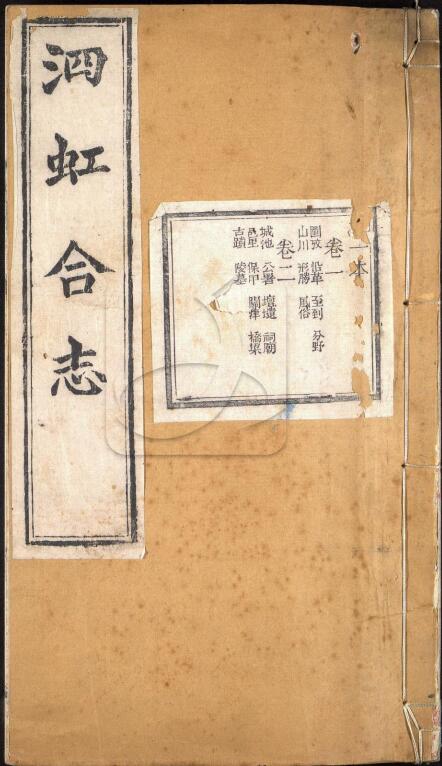 泗虹合志
一本
卷一
圖攷 沿革 至到 分野
山川 形勝 風俗
卷二
城池 公署 壇壝 祠廟
邑里 保甲 關津 橋梁
古蹟 陵墓